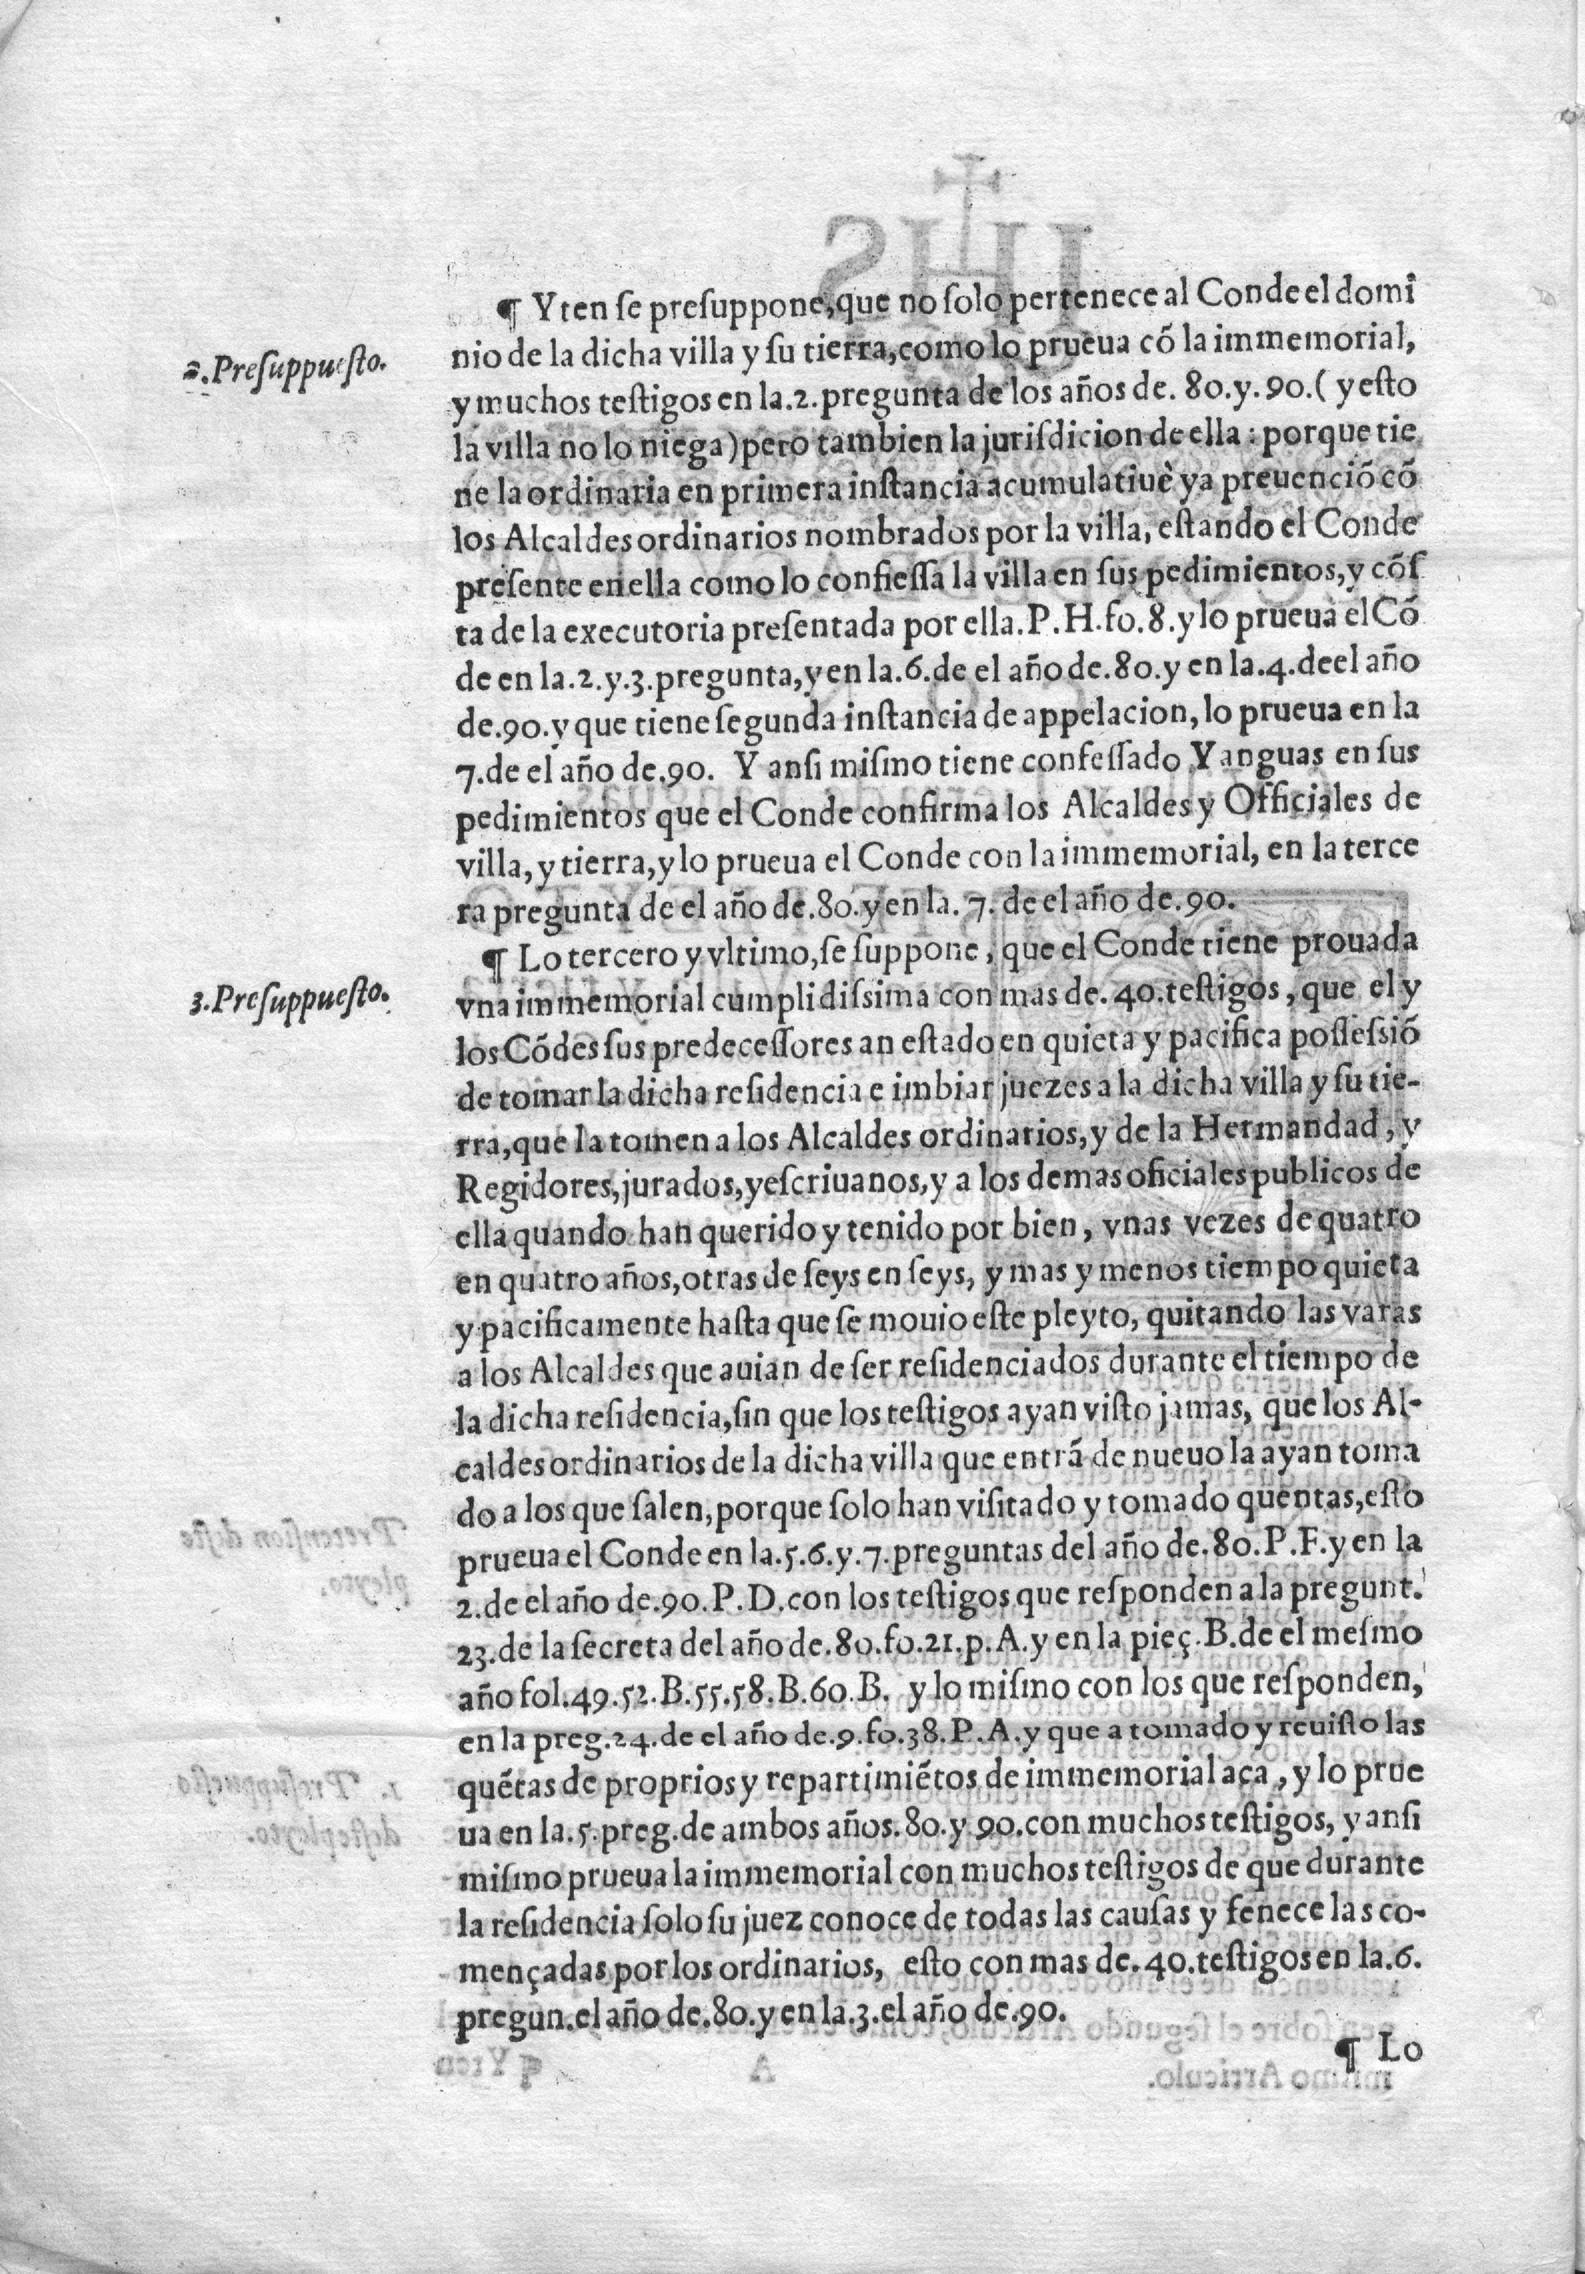 ¶ Yten se presuppone, que no solo pertenece al Conde el domi
2. Presuppuesto.
nio de la dicha villa y su tierra, como lo prueua cõ la immemorial,
y muchos testigos en la.2.pregunta de los años de. 80.y.90.( y esto
la villa no lo niega) pero tambien la jurisdicion de ella : porque tie
ne la ordinaria en primera instancia acumulatiuè y a preuenciõ cõ
los Alcaldes ordinarios nombrados por la villa, estando el Conde
presente en ella como lo confiessa la villa en sus pedimientos, y cõs
ta de la executoria presentada por ella.P.H.fo.8.y lo prueua el Cõ
de en la.2.y.3.pregunta, y en la.6.de el año de.80.y en la.4.de el año
de.90.y que tiene segunda instancia de appelacion, lo prueua en la
7.de el año de.90. Y ansi mismo tiene confessado Yanguas en sus
pedimientos que el Conde confirma los Alcaldes y Officiales de
villa, y tierra, y lo prueua el Conde con la immemorial, en la terce
ra pregunta de el año de.80.y en la.7.de el año de.90.
¶ Lo tercero y vltimo, se suppone, que el Conde tiene prouada
3. Presuppuesto.
vna immemorial cumplidissima con mas de.40.testigos, que el y
los Cõdes sus predecessores an estado en quieta y pacifica possessiõ
de tomar la dicha residencia e imbiar juezes a la dicha villa y su tie-
rra, que la tomen a los Alcaldes ordinarios, y de la Hermandad, y
Regidores, jurados, y escriuanos, y a los demas oficiales publicos de
ella quando han querido y tenido por bien, vnas vezes de quatro
en quatro años, otras de seys en seys, y mas y menos tiempo quieta
y pacificamente hasta que se mouio este pleyto, quitando las varas
a los Alcaldes que auian de ser residenciados durante el tiempo de
la dicha residencia, sin que los testigos ayan visto jamas, que los Al-
caldes ordinarios de la dicha villa que entrã de nueuo la ayan toma
do a los que salen, porque solo han visitado y tomado quentas, esto
prueua el Conde en la.5.6.y.7.preguntas del año de.80.P.F.y en la
2.de el año de.90.P.D.con los testigos que responden a la pregunt.
23.de la secreta del año de.80.fo.21.p.A.y en la pieç.B.de el mesmo
año fol.49.52.B.55.58.B.60.B. y lo mismo con los que responden,
en la preg.24.de el año de.9.fo.38.P.A.y que a tomado y reuisto las
quẽtas de proprios y repartimiẽtos de immemorial aca, y lo prue
ua en la.5.preg.de ambos años.80.y.90.con muchos testigos, y ansi
mismo prueua la immemorial con muchos testigos de que durante
la residencia solo su juez conoce de todas las causas y fenece las co-
mençadas por los ordinarios, esto con mas de.40.testigos en la.6.
pregun.el año de.80.y en la.3.el año de.90.
¶ Lo